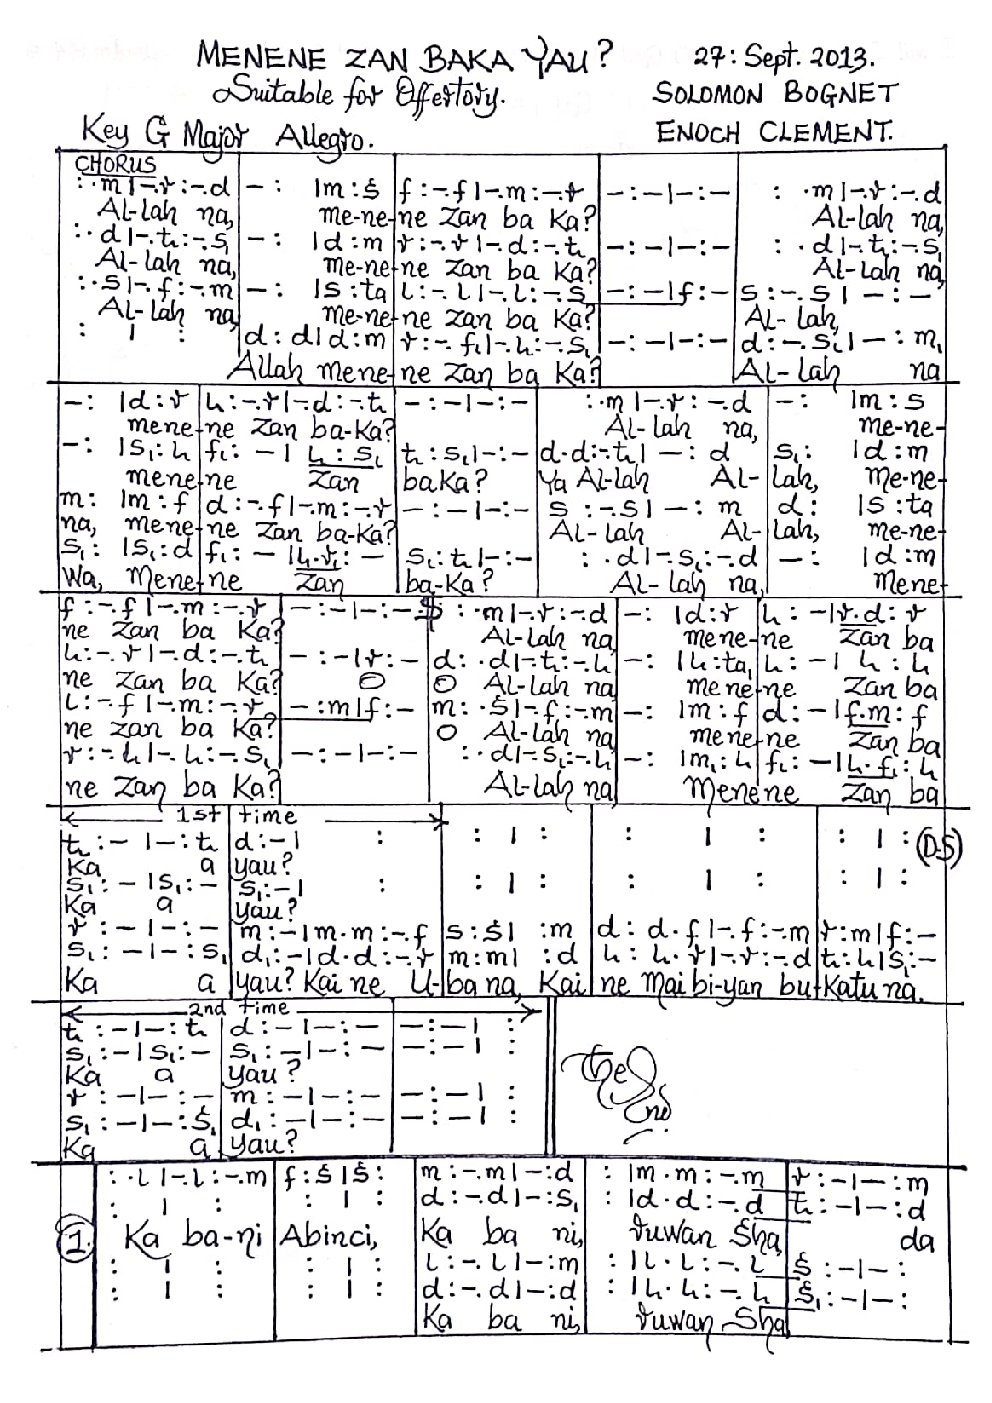 MENENE ZAN BAKA YAU? 27: Sept. 2013.
Suitable for Offertory. SOLOMON BOGNET
Key G Major Allegro. ENOCH CLEMENT.
CHORUS
: ·m | -·r : -·d | - : | m : s | f : -·f | -·m : -·r | - : - | - : - | : ·m | -·r : -·d
Al-lah na, me-ne-ne Zan ba Ka? Al-lah na,
: ·d | -·t₁ : -·s₁ | - : | d : m | r : -·r | -·d : -·t₁ | - : - | - : - | : ·d | -·t₁ : -·s₁
Al-lah na, me-ne-ne Zan ba Ka? Al-lah na,
: ·s | -·f : -·m | - : | s : ta | l : -·l | -·l : -·s | - : - | f : - | s : -·s | - : -
Al-lah na, me-ne-ne Zan ba Ka? Al-lah,
: | : | d : d | d : m | r : -·f₁ | -·l₁ : -·s₁ | - : - | - : - | d : -·s₁ | - : m₁
Allah mene-ne Zan ba Ka? Al-lah na
- : | d : r | l₁ : -·r | -·d : -·t₁ | - : - | - : - | : ·m | -·r : -·d | - : | m : s
mene-ne Zan ba-Ka? Al-lah na, me-ne-
- : | s₁ : l₁ | f₁ : - | l₁ : s₁ | t₁ : s₁ | - : - | d·d : -·t₁ | - : d | s₁ : | d : m
mene-ne Zan baKa? Ya Al-lah Al-lah, me-ne-
m : | m : f | d : -·f | -·m : -·r | - : - | - : - | s : -·s | - : m | d : | s : ta
na, mene-ne Zan ba-Ka? Al-lah Al-lah, me-ne-
s₁ : | s₁ : d | f₁ : - | l₁·r₁ : - | s₁ : t₁ | - : - | : ·d | -·s₁ : -·d | - : | d : m
Wa, Mene-ne Zan ba-Ka? Al-lah na, Mene-
f : -·f | -·m : -·r | - : - | - : - | $ : ·m | -·r : -·d | - : | d : r | l₁ : - | r·d : r
ne Zan ba Ka? Al-lah na, mene-ne Zan ba
l₁ : -·r | -·d : -·t₁ | - : - | r : - | d : ·d | -·t₁ : -·l₁ | - : | l₁ : ta₁ | l₁ : - | l₁ : l₁
ne Zan ba Ka? O O Al-lah na, mene-ne Zan ba
l : -·f | -·m : -·r | - : m | f : - | m : ·s | -·f : -·m | - : | m : f | d : - | f·m : f
ne zan ba Ka? O Al-lah na, mene-ne Zan ba
r : -·l₁ | -·l₁ : -·s₁ | - : - | - : - | : ·d | -·s₁ : -·l₁ | - : | m₁ : l₁ | f₁ : - | l₁·f₁ : l₁
ne Zan ba Ka? Al-lah na, Menene Zan ba
1st time
t₁ : - | - : t₁ | d : - | : | : | : | : | : | : | : (D.S)
Ka a yau?
s₁ : - | s₁ : - | s₁ : - | : | : | : | : | : | : | :
Ka a Yau?
r : - | - : - | m : - | m·m : -·f | s : s | : m | d : d·f | -·f : -·m | r : m | f : -
s₁ : - | - : s₁ | d₁ : - | d·d : -·r | m : m | : d | l₁ : l₁·r | -·r : -·d | t₁ : l₁ | s₁ : -
Ka a yau? Kai ne U-ba na, Kai ne Mai bi-yan bu-Katu na.
2nd time
t₁ : - | - : t₁ | d : - | - : - | - : - | :
s₁ : - | s₁ : - | s₁ : - | - : - | - : - | :
Ka a Yau?
r : - | - : - | m : - | - : - | - : - | :
s₁ : - | - : s₁ | d₁ : - | - : - | - : - | :
Ka a yau?
The End
: ·l | -·l : -·m | f : s | s : | m : -·m | - : d | : | m·m : -·m | r : - | - : m
: | : | : | : | d : -·d | - : s₁ | : | d·d : -·d | t₁ : - | - : d
1. Ka ba-ni Abinci, Ka ba ni, ruwan Sha da
: | : | : | : | l : -·l | - : m | : | l·l : -·l | s : - | - :
: | : | : | : | d : -·d | - : d | : | l₁·l₁ : -·l₁ | s₁ : - | - :
Ka ba ni, ruwan Sha